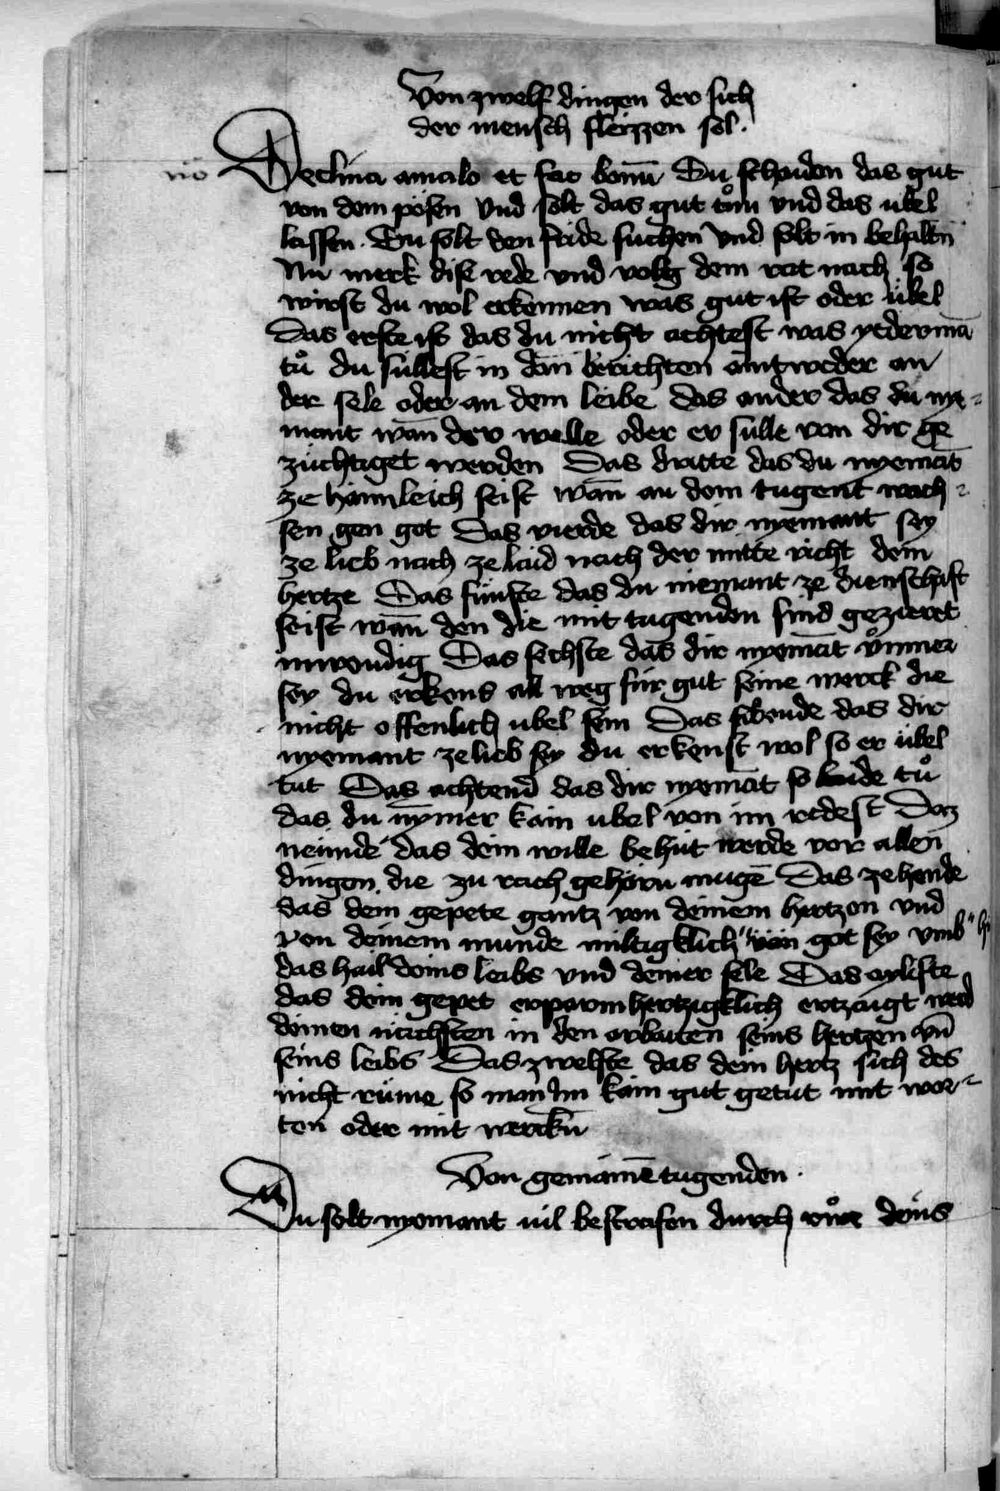 Von zwelf dingen der sich
der mensch fleizzen sol.
Declina amalo et fac bonū Du schaiden das gut
von dem pösen vnd solt das gut tůn vnd das ubel
lassen. Du solt den fride suchen vnd solt in behaltn
Nu merk dise rede vnd volg dem rat nach so
wirst du wol erkennen was gut ist oder übel
Das erste ist das du nicht achtest was yederman̄
tů du süllest in dan berichten äntweder an
der sele oder an dem leibe das ander das du nye=
mant wān der welle oder er sülle von dir ge
züchtiget werden Das dritte das du nyemāt
ze haimleich seist wān an dem tugent wach=
sen gen got Das vierde das dir nyemant sey
ze lieb nach ze laid nach der mitte richt dein
hertze Das fünfte das du niemant ze dienschaft
seist wān den die mit tugenden sind gezieret
inwendig Das sechste das dir nyemāt
sey du erkens all weg für gut seine werck die
nicht offenlich ubel sein Das sibende das dir
nyemant ze lieb sey du erkenst wol so er übel
tut Das achtend das dir nyemāt so laide tů
das du nȳmer kain ubel von im redest Daz
neünde das dein wille behüt werde vor allen
dingen die zu rach gehörn mugē Das zehende
das dein gepete gantz von deinem hertzen vnd
von deinem munde miltigklich gen got sey vmb
das hail deins leibs vnd deiner sele Das ayliste
das dein gepet erparmhertzigklich ertzaigt werd
deinen nächsten in den arbaiten seins hertzen vn̄
seins leibs Das zwelfte das dein hertz sich des
nicht rüme so man im kain gut getut mit wor=
ten oder mit werckn̄
Von gemainē tugenden.
Du solt nyemant uil bestrafen durch deins